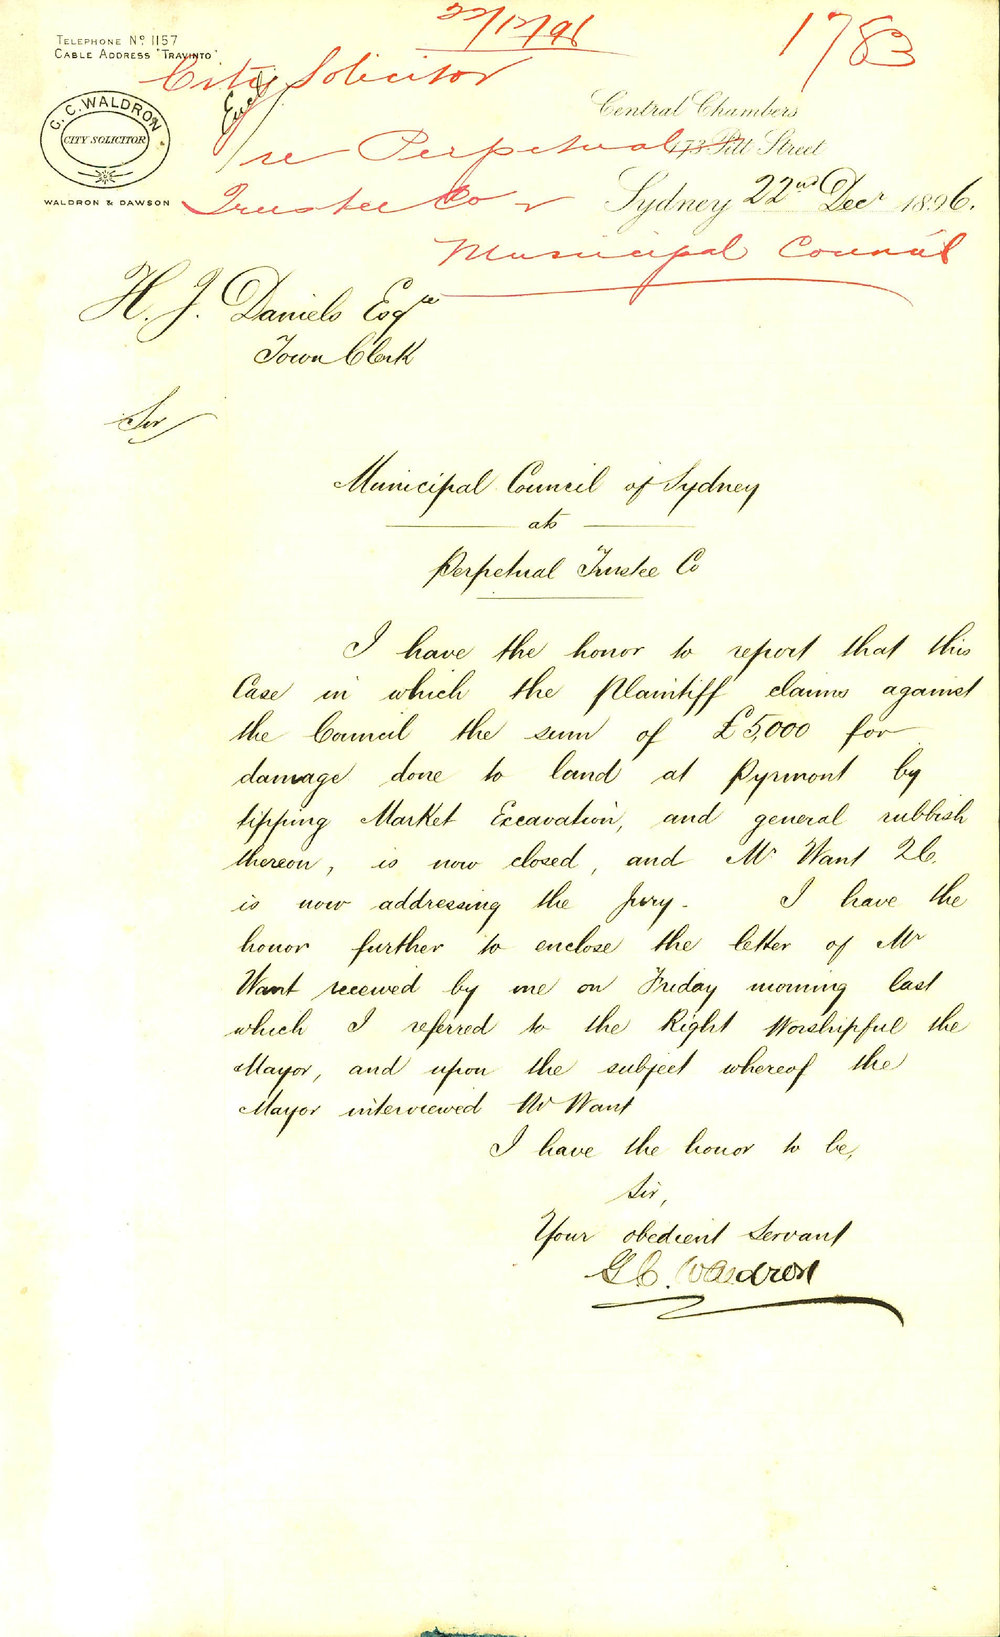 22/12/96
1783
TELEPHONE No 1157
CABLE ADDRESS 'TRAVINTO'
City Solicitor
Encl
G. C. WALDRON
CITY SOLICITOR
WALDRON & DAWSON
Central Chambers
173 Pitt Street
re Perpetual
Trustee Co v
Sydney 22nd Decr 1896.
Municipal Council
H. J. Daniels Esqre
Town Clerk
Sir
Municipal Council of Sydney
ats
Perpetual Trustee Co
I have the honor to report that this
Case in which the Plaintiff claims against
the Council the sum of £5,000 for
damage done to land at Pyrmont by
tipping Market Excavation, and general rubbish
thereon, is now closed, and Mr Want QC.
is now addressing the Jury. I have the
honor further to enclose the letter of Mr
Want received by me on Friday morning last
which I referred to the Right Worshipful the
Mayor, and upon the subject whereof the
Mayor interviewed Mr Want
I have the honor to be,
Sir,
Your obedient servant
G C. Waldron